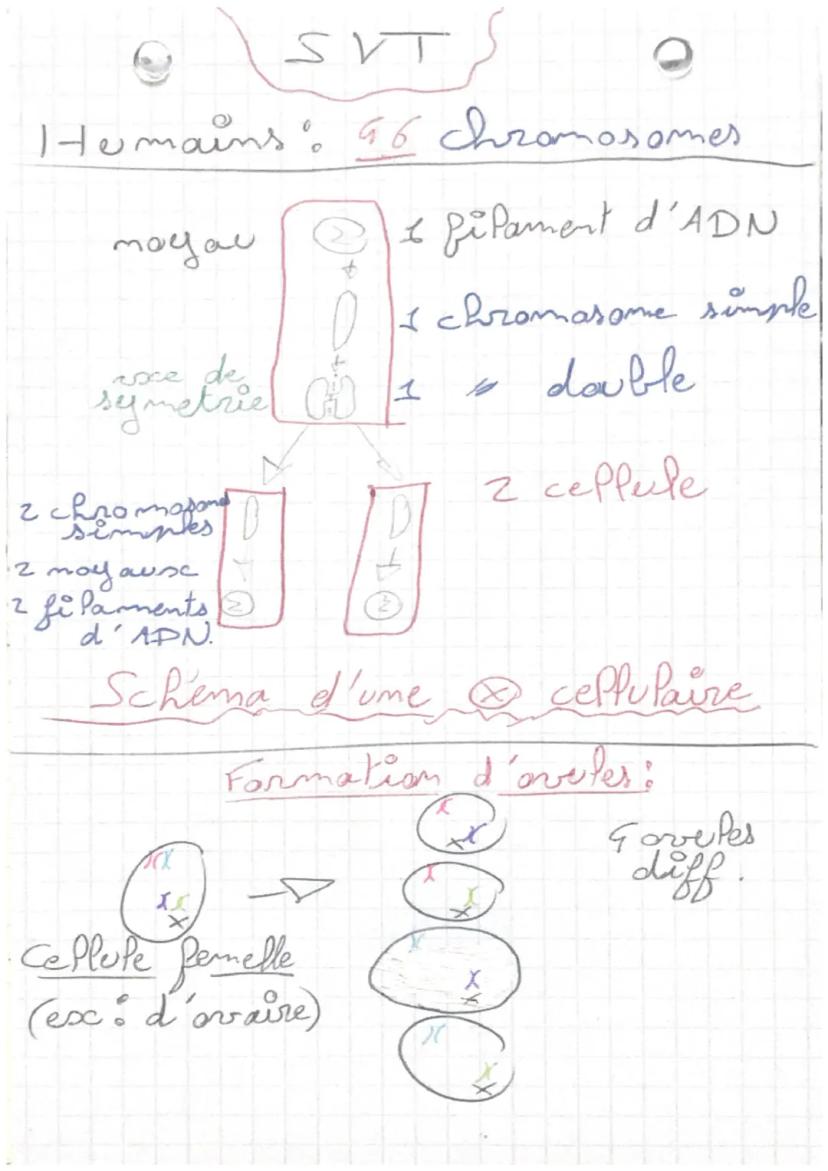 SVT
Humains : 46 chromosomes
noyau
1 filament d'ADN
1 chromosome simple
axe de
symetrie
1 " double
2 cellule
2 chromosomes
simples
2 noyaux
2 filaments
d'ADN.
Schéma d'une ⊗ cellulaire
Formation d'ovules :
4 ovules
diff.
Cellule femelle
(ex : d'ovaire)